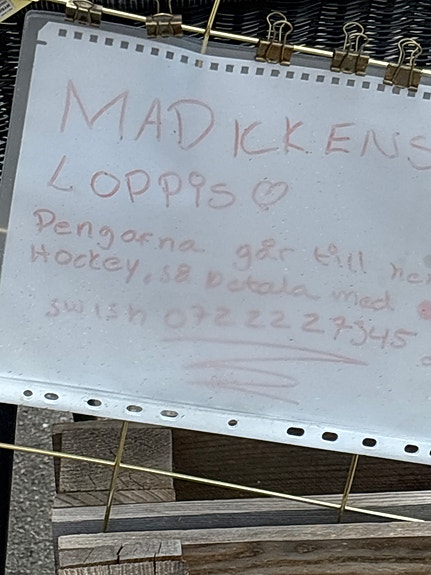 MADICKENS
LOPPIS ♡
Pengarna går till
Hockey, så betala med
swish 0722227345